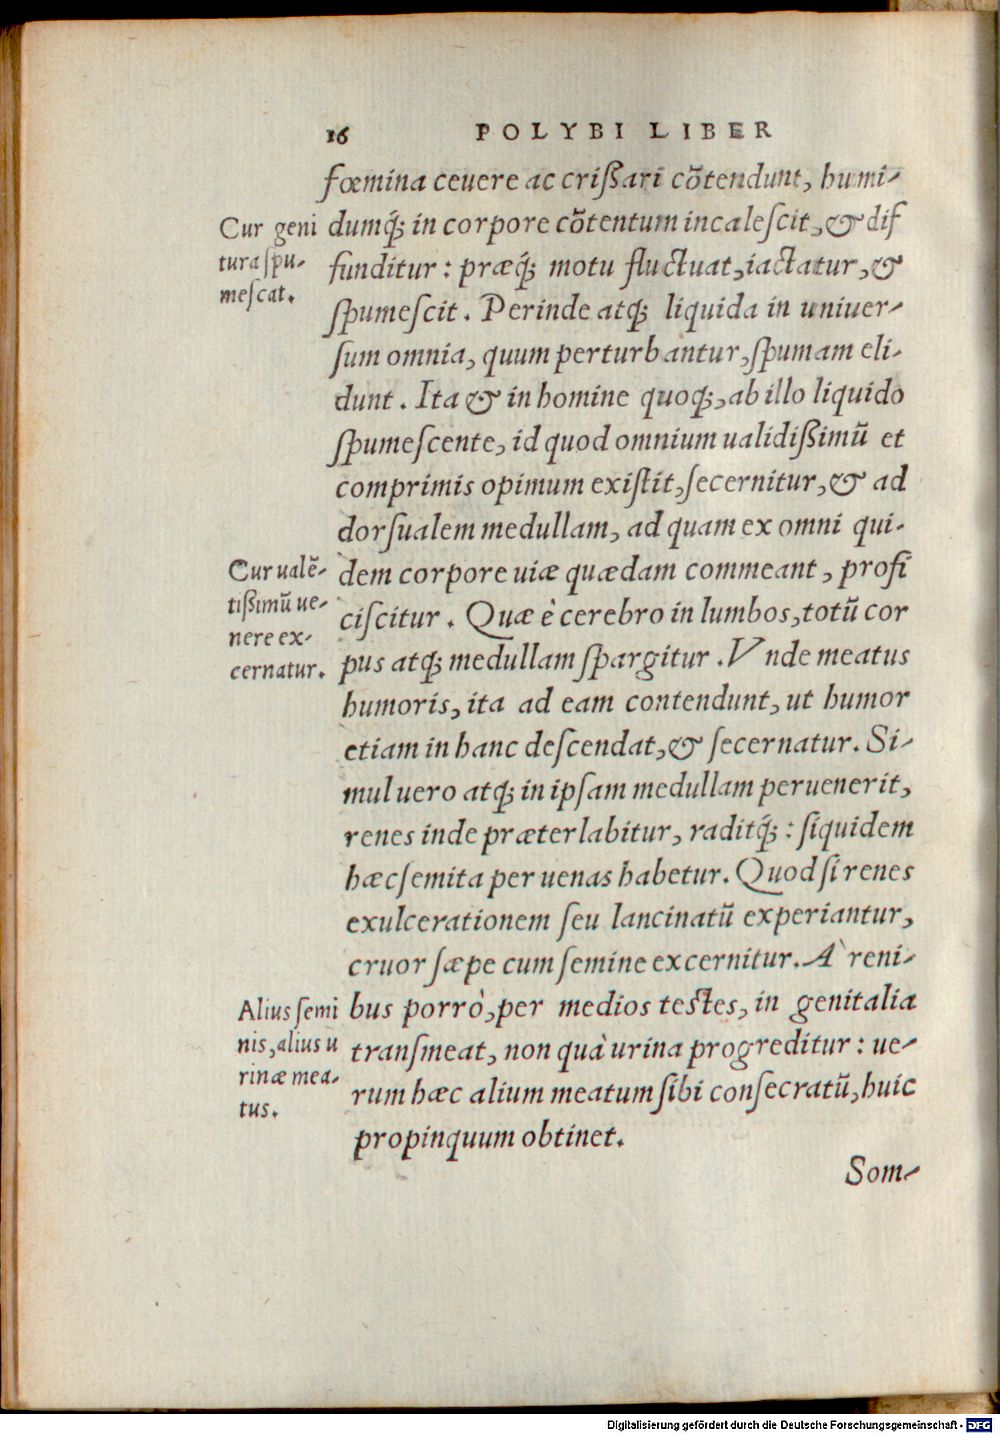 16 POLYBI LIBER
fœmina ceuere ac crißari cõtendunt, humi-
Cur geni
tura ſpu-
meſcat.
dumq́; in corpore cõtentum incaleſcit, & dif
funditur: præq́; motu fluctuat, iactatur, &
ſpumeſcit. Perinde atq; liquida in uniuer-
ſum omnia, quum perturbantur, ſpumam eli-
dunt. Ita & in homine quoq;, ab illo liquido
ſpumeſcente, id quod omnium ualidißimũ et
comprimis opimum exiſtit, ſecernitur, & ad
dorſualem medullam, ad quam ex omni qui-
Cur ualẽ-
tißimũ ue-
nere ex-
cernatur.
dem corpore uiæ quædam commeant, profi
ciſcitur. Quæ è cerebro in lumbos, totũ cor
pus atq; medullam ſpargitur. Vnde meatus
humoris, ita ad eam contendunt, ut humor
etiam in hanc deſcendat, & ſecernatur. Si-
mul uero atq; in ipſam medullam peruenerit,
renes inde præterlabitur, raditq́;: ſiquidem
hæc ſemita per uenas habetur. Quod ſi renes
exulcerationem ſeu lancinatũ experiantur,
cruor ſæpe cum ſemine excernitur. A` reni-
Alius ſemi
nis, alius u
rinæ mea-
tus.
bus porrò, per medios teſtes, in genitalia
tranſmeat, non quà urina progreditur: ue-
rum hæc alium meatum ſibi conſecratũ, huic
propinquum obtinet.
Som-
Digitalisierung gefördert durch die Deutsche Forschungsgemeinschaft - DFG